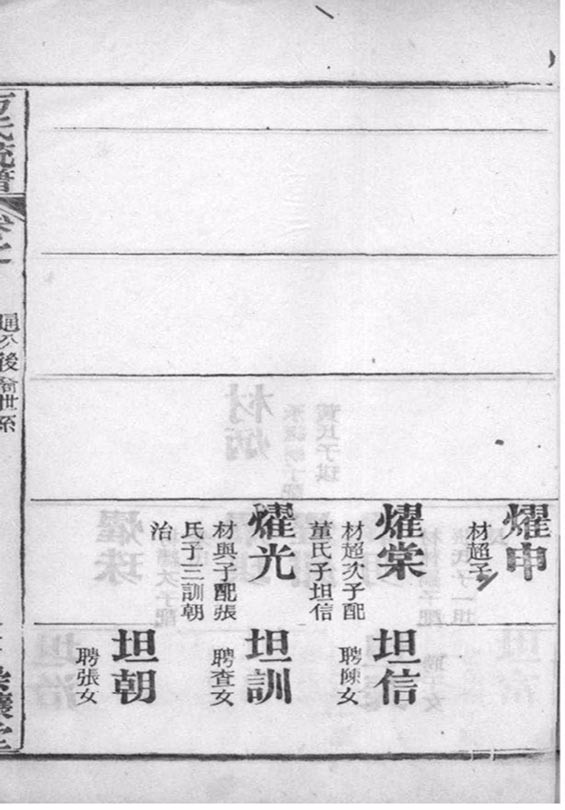 燿申
材超子
燿棠
材超次子配
董氏子坦信
燿光
材與子配張
氏子三訓朝
治
坦信
聘陳女
坦訓
聘查女
坦朝
聘張女
後
世系